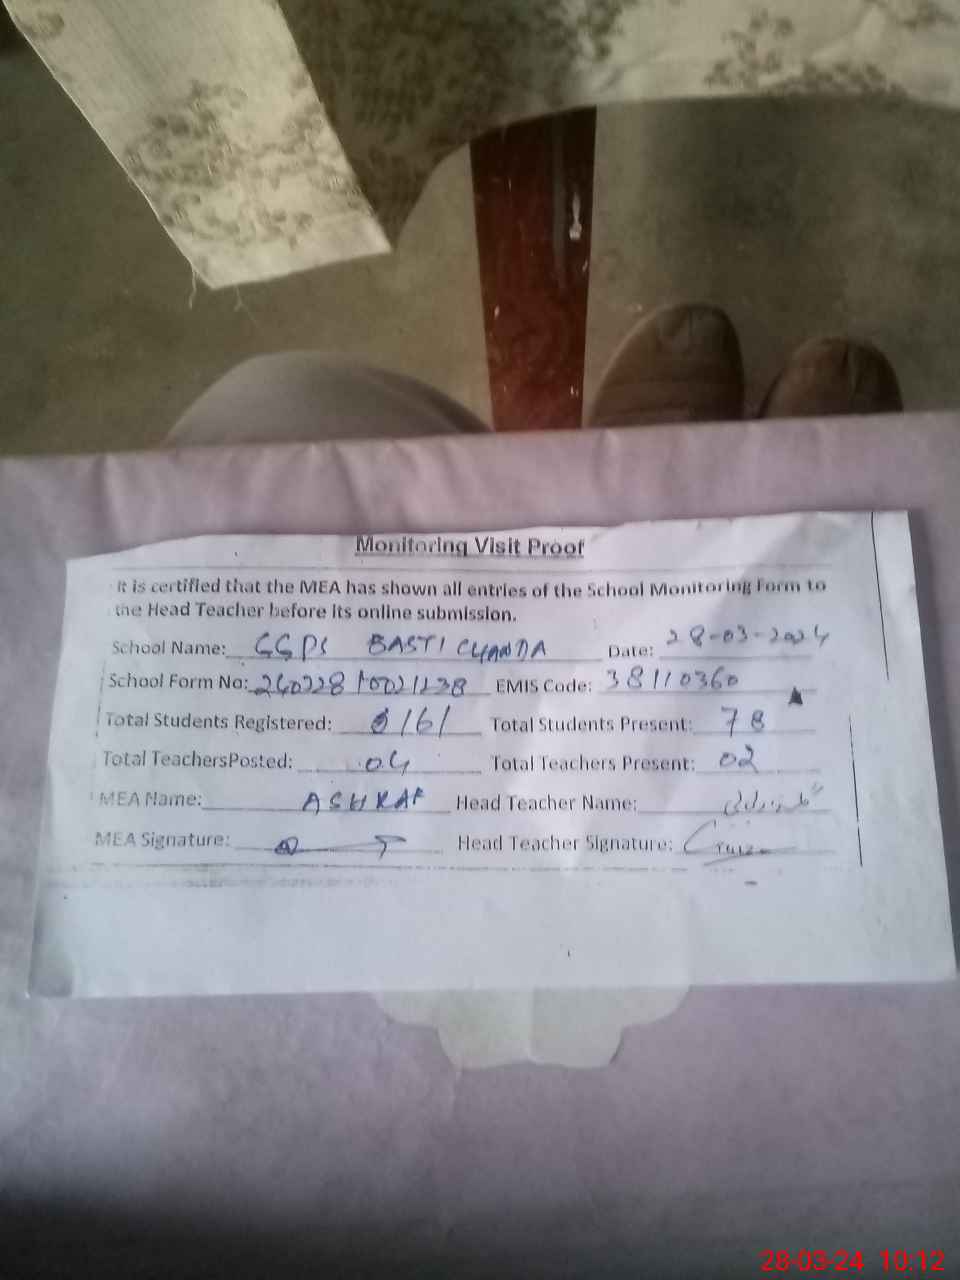 Monitoring Visit Proof
It is certified that the MEA has shown all entries of the School Monitoring Form to
the Head Teacher before its online submission.
School Name: GGPS BASTI CHANDA Date: 28-03-2024
School Form No: EMIS Code: 38110360
Total Students Registered: 161 Total Students Present: 78
Total TeachersPosted: 04 Total Teachers Present: 02
MEA Name: ASHRAF Head Teacher Name:
MEA Signature: Head Teacher Signature:
28-03-24 10:12